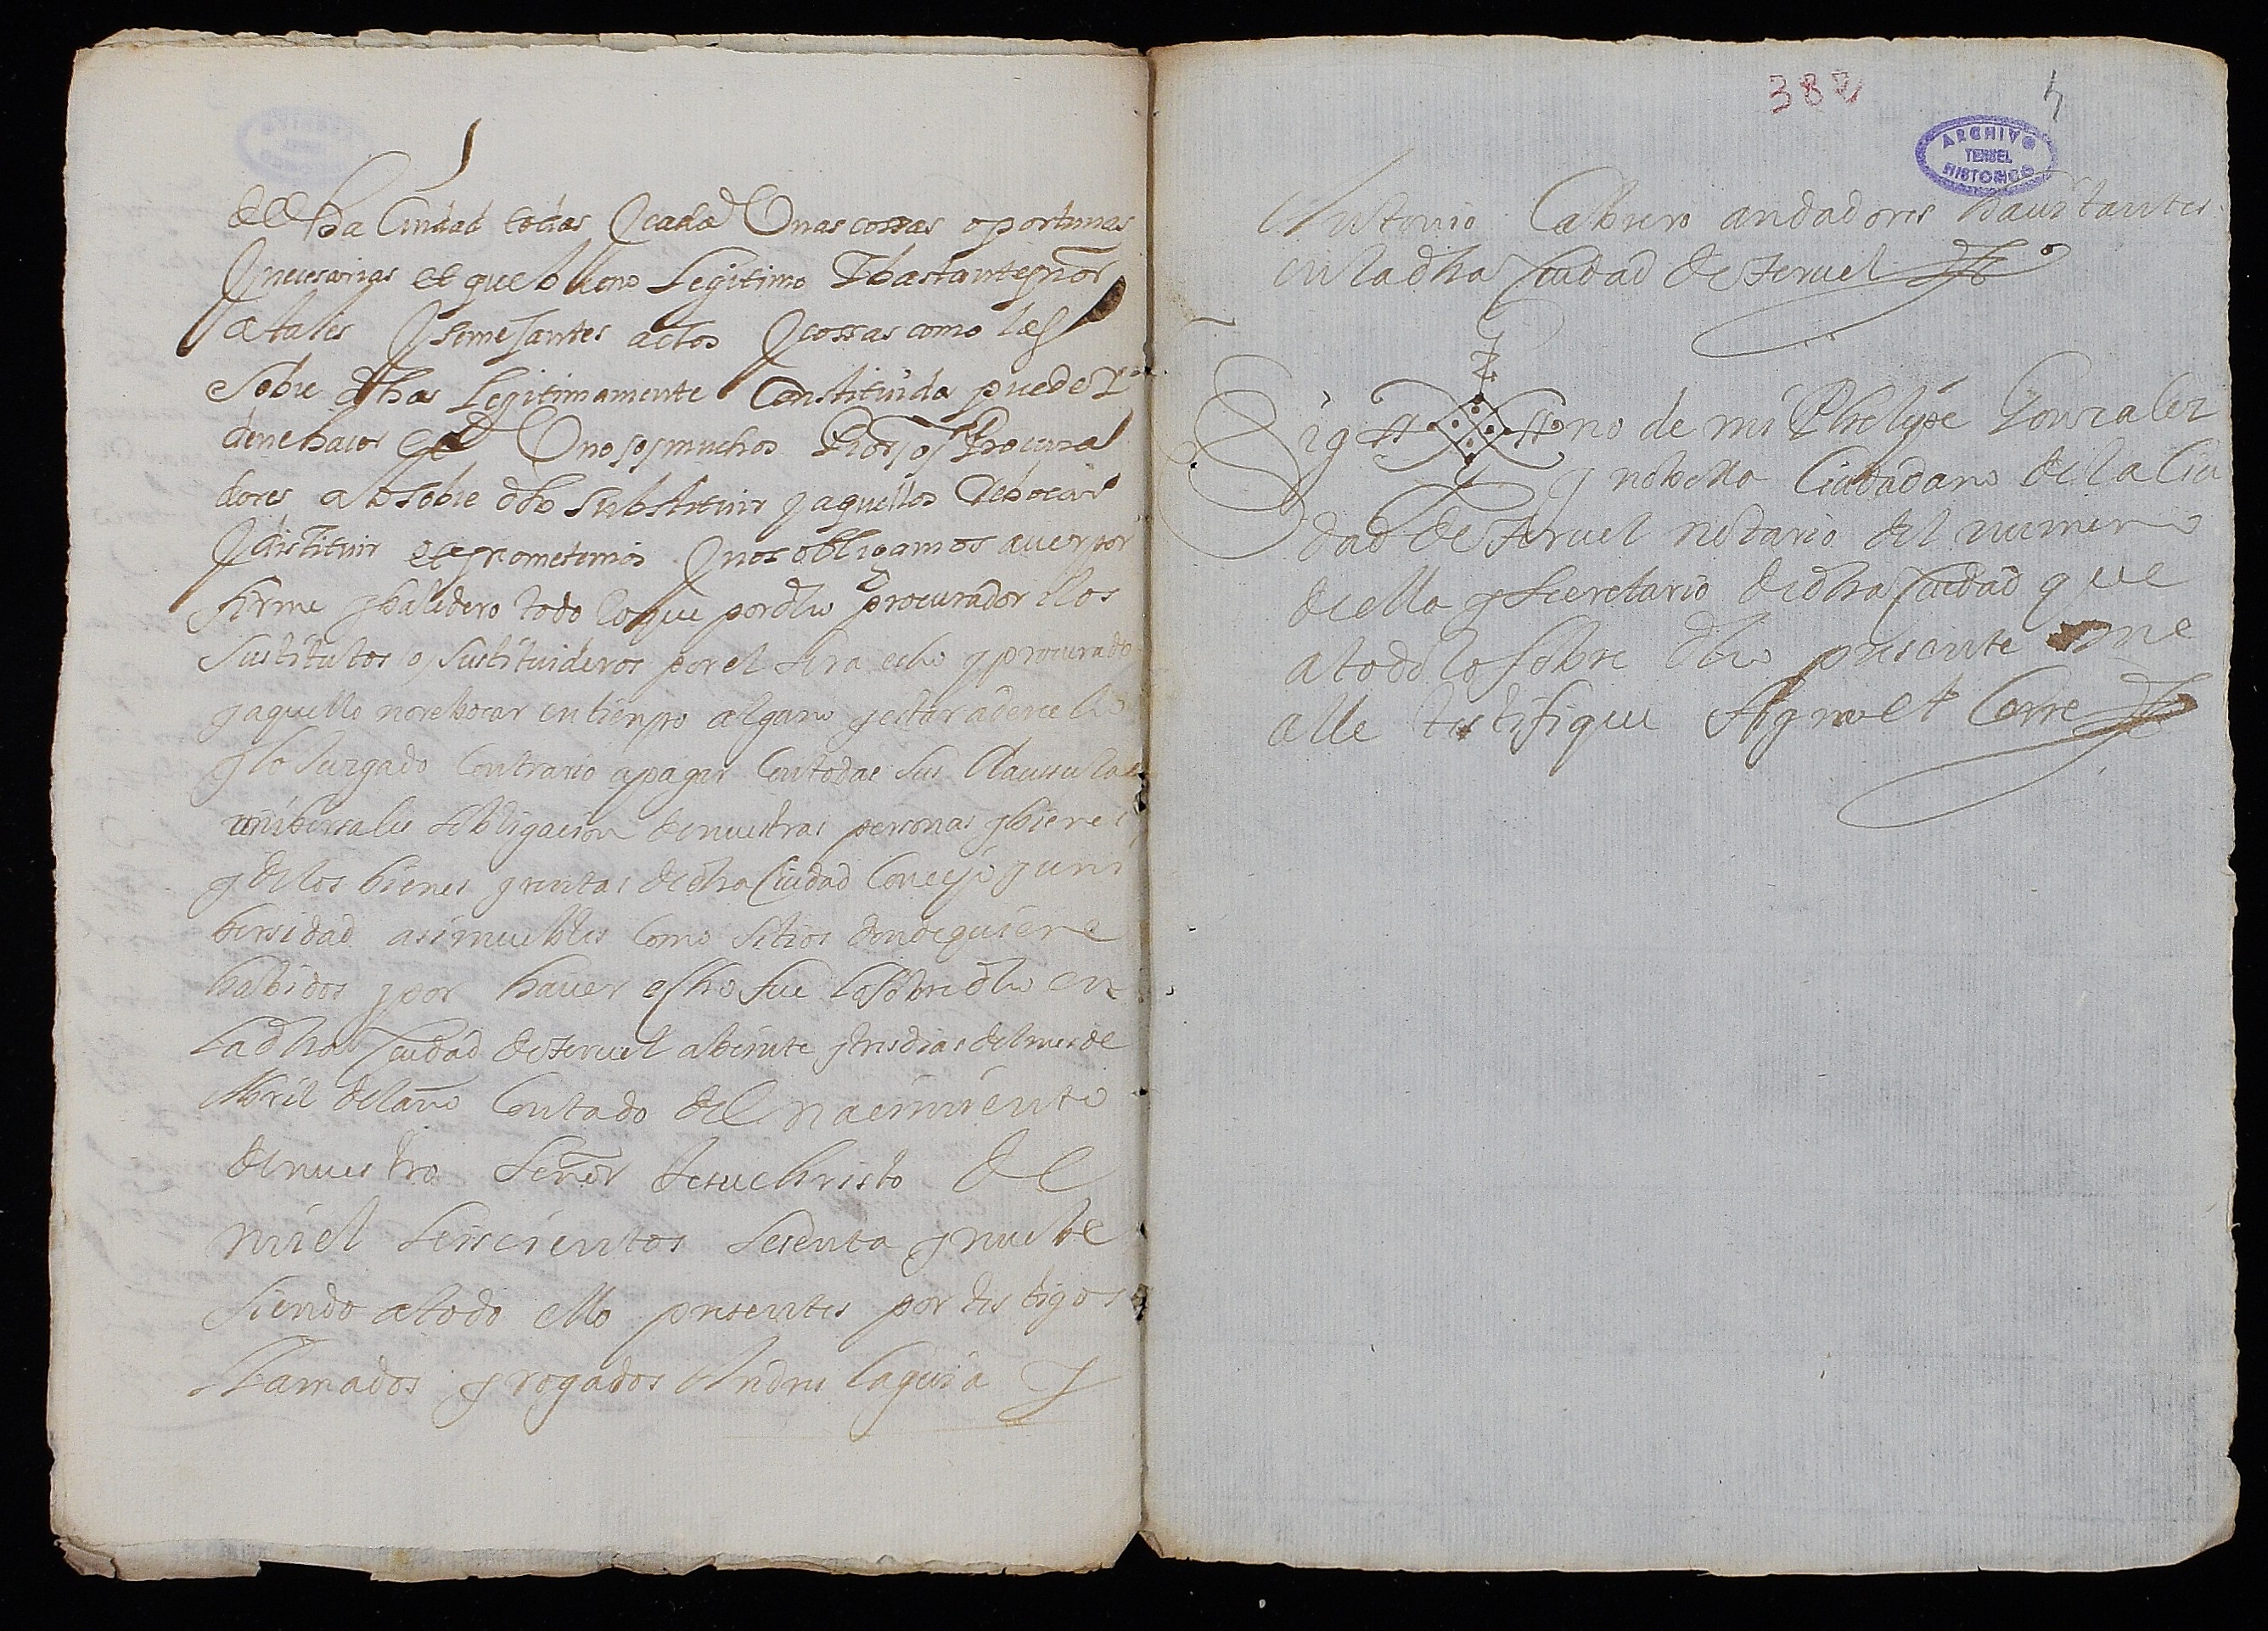 de dha Ciudad todas y cada Unas cossas oportunas
y necesarias et que bueno Legitimo y bastante pñor
a tales y semejantes actos y cossas como las
sobre dhas Legitimamente Constituida puede y
deve hacer et Uno o muchos Prors o Procura
dores a lo sobre dho substituir y aquellos Rebocar
y distituir et prometemos y nos obligamos aver por
firme y balidero todo lo que por dho procurador i los
sustitutos o sustituideros por el sera echo y procurado
y aquello no rebocar en tiempo alguno y estar a derecho
y lo Juzgado Contrario a pagar Con todas sus Clausulas
unibersales obligacion de nuestras personas y bienes
y de los bienes y rentas de dha Ciudad Concejo y uni
bersidad asi muebles Como sitios donde quiere
habidos y por haver echo fue lo sobre dho en
la dha Ciudad de Teruel a beinte y tres dias del mes de
Abril del año Contado del nacimiento
de nuestro Señor Jesuchristo de
mil seiscientos sesenta y nuebe
siendo a todo ello presentes por testigos
llamados y rogados Andres laguia y
382
4
ARCHIVO
TERUEL
HISTORICO
Antonio Cabrero andadores havitantes
en la dha Ciudad de Teruel
Sig no de mi Phelipe Gonzalez
y nobella Ciudadano de la Ciu
dad de Teruel notario del numero
de ella y secretario de dha Ciudad que
a todo lo sobre dho presente me
alle testifique signe et Cerre